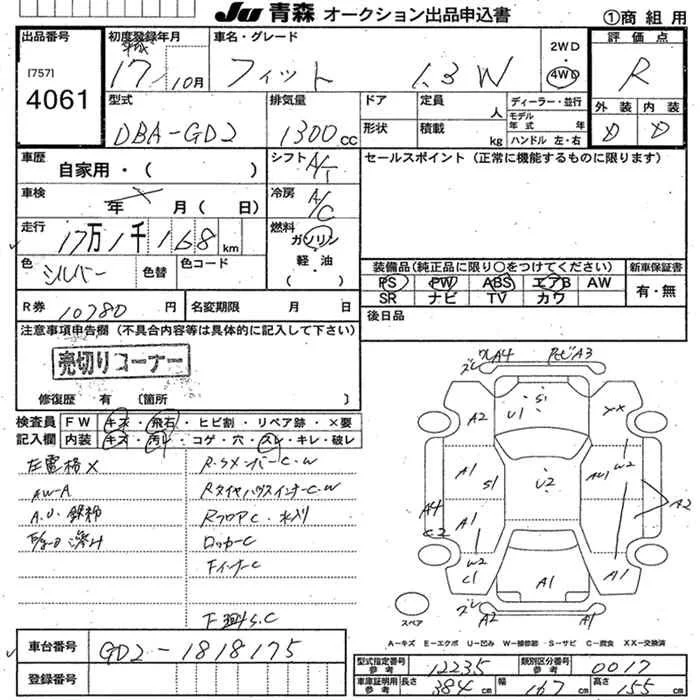 JU 青森 オークション出品申込書
①商 組 用
出品番号
[757]
4061
初度登録年月
平成
17 - 10月
車名・グレード
フィット 1.3 W
2WD
4WD
評価点
R
外装 内装
D D
型式
DBA-GD2
排気量
1300cc
ドア
形状
定員 人
積載 kg
ディーラー・並行
モデル年式 年
ハンドル 左・右
車歴
自家用・( )
シフト A/T
セールスポイント(正常に機能するものに限ります)
車検
年 月( 日)
冷房 A/C
走行
17万1千168km
燃料
ガソリン
軽・油
( )
色 シルバー
色替
色コード
装備品(純正品に限り○をつけてください)
新車保証書
PS PW ABS エアB AW
SR ナビ TV カワ
有・無
R券 10780円
名変期限 月 日
後日品
注意事項申告欄(不具合内容等は具体的に記入して下さい)
売切りコーナー
修復歴 有 〔箇所 〕
検査員
記入欄
FW キズ・飛石・ヒビ割・リペア跡・×要
内装 キズ・汚レ・コゲ・穴・スレ・キレ・破レ
左電格×
AW-A
R.サメンバーC.W
RタイヤハウスインナーC.W
RフロアC.水入り
ロッカーC
FインナーC
A4
A3
U1
S1
A2
XX
A1
S1
U2
W2
A4
C2
A1
A2
W2
C1
A1
A1
A2
A1
スペア
A-キズ E-エクボ U-凹み W-補修跡 S-サビ C-腐食 XX-交換済
車台番号
GD2-1818175
登録番号
型式指定番号 参考 12235
類別区分番号 参考 0017
車庫証明用 参考
長さ 384cm
幅 167cm
高さ 155cm